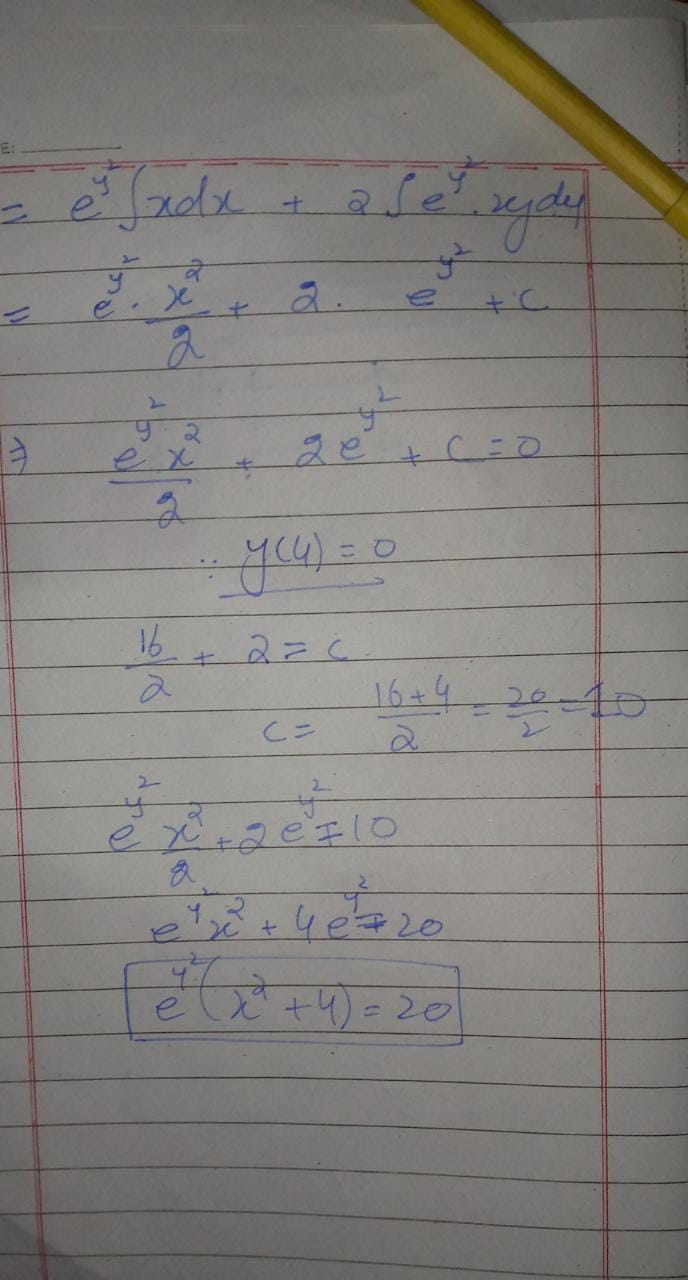 E:
= e^{y^2} ∫xdx + 2∫e^{y^2}.xydy
= e^{y^2}. x^2/2 + 2. e^{y^2} + c
⇒ e^{y^2} x^2/2 + 2e^{y^2} + C = 0
∵ y(4) = 0
16/2 + 2 = c
c = 16+4/2 = 20/2 = 10
e^{y^2} x^2/2 + 2e^{y^2} = 10
e^{y^2} x^2 + 4e^{y^2} = 20
e^{y^2}(x^2 + 4) = 20